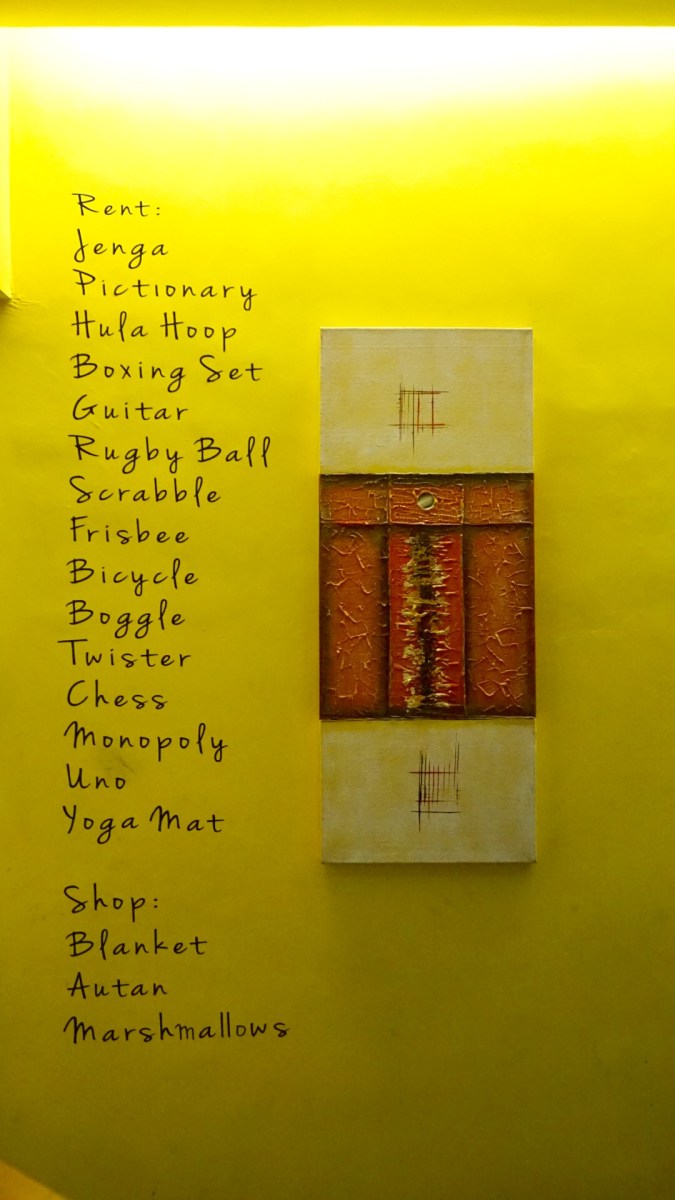 Rent:
Jenga
Pictionary
Hula Hoop
Boxing Set
Guitar
Rugby Ball
Scrabble
Frisbee
Bicycle
Boggle
Twister
Chess
Monopoly
Uno
Yoga Mat
Shop:
Blanket
Autan
Marshmallows